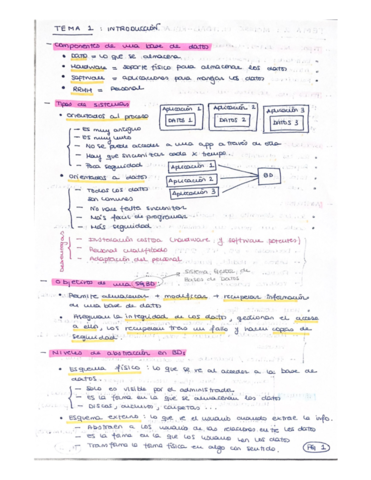 TEMA 1 : INTRODUCCIÓN
- Componentes de una base de datos
• DATO = lo que se almacena
• Hardware = soporte físico para almacenar los datos
• Software = aplicaciones para manejar los datos
• RRHH = personal
- Tipos de sistemas
• Orientados al proceso
Aplicación 1 Aplicación 2 Aplicación 3
DATOS 1 DATOS 2 DATOS 3
- Es muy antiguo
- Es muy lento
- No se puede acceder a una app a través de otra
- Hay que sincronizar cada x tiempo.
- Poca seguridad
• Orientados a datos
Aplicación 1
Aplicación 2
Aplicación 3
BD
- Todos los datos
son comunes
- No hace falta sincronizar
- Más fácil de programar
- Más seguridad
Desventajas
- Instalación costosa (hardware y software potentes)
- Personal cualificado
- Adaptación del personal
- Objetivos de una SGBD
Sistema Gestor de
Bases de Datos
• Permite almacenar, modificar y recuperar información
de una base de datos
• Aseguran la integridad de los datos, gestionan el acceso
a ellos, los recuperan tras un fallo y hacen copias de
seguridad.
- Niveles de abstracción en BD:
• Esquema físico: lo que se ve al acceder a la base de
datos.
- Solo es visible por el administrador
- Es la forma en la que se almacenan los datos
- Discos, archivos, carpetas...
• Esquema externo: lo que ve el usuario cuando extrae la info.
- Abstraen a los usuarios de las relaciones entre los datos
- Es la forma en la que los usuarios ven los datos
- Transforma la forma física en algo con sentido.
PG 1